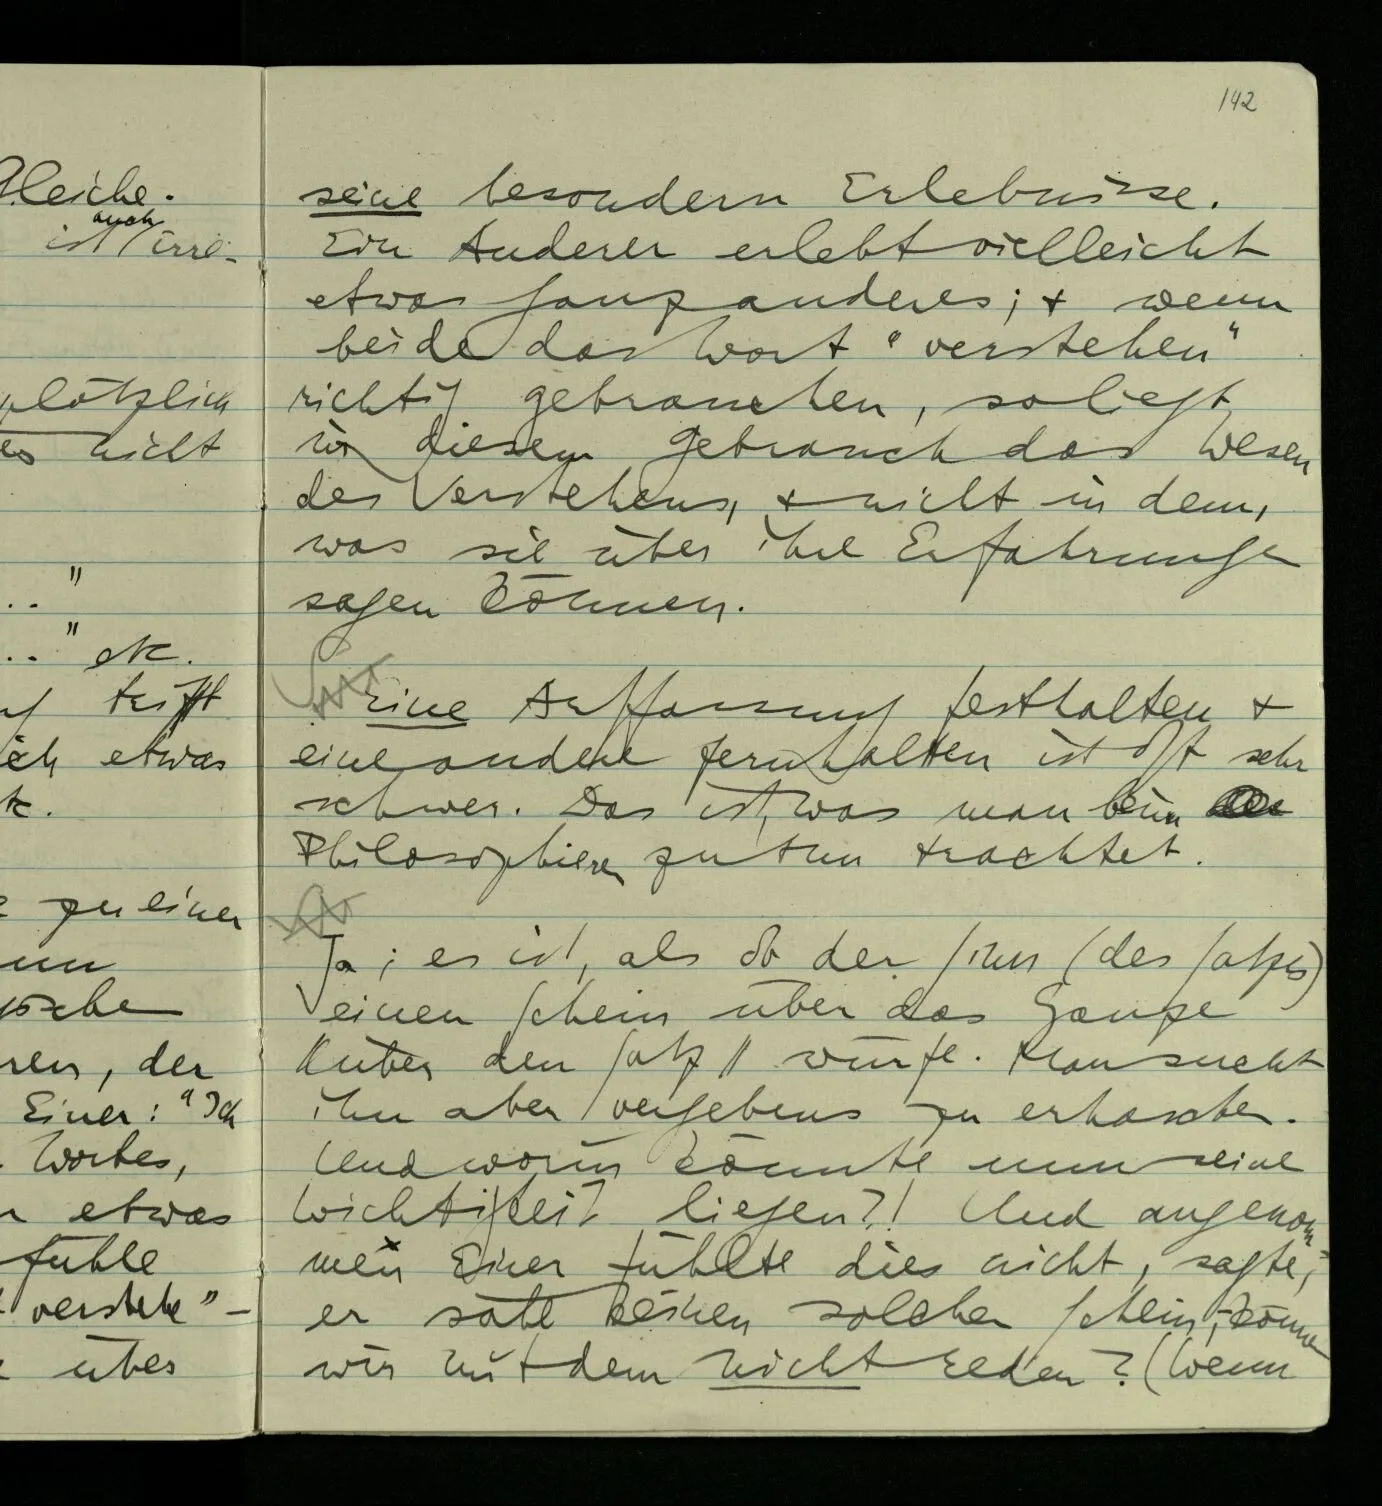 142
Gleiche.
auch
ist irre-
plötzlich
es nicht
.."
.." etc.
trifft
ich etwas
zu einer
ren, der
Einer: "Ich
Wortes,
etwas
fühle
verstehe" –
über
seine besondern Erlebnisse.
Ein Anderer erlebt vielleicht
etwas ganz anderes; & wenn
beide das Wort "verstehen"
richtig gebrauchen, so liegt
in diesem Gebrauch das Wesen
des Verstehens, & nicht in dem,
was sie über ihre Erfahrunge
sagen können.
Eine Auffassung festhalten &
eine andere fernhalten ist oft sehr
schwer. Das ist, was man beim
Philosophieren zu tun trachtet.
Ja; es ist, als ob der Sinn (des Satzes)
einen Schein über das Ganze
// über den Satz // würfe. Man sucht
ihn aber vergebens zu erhaschen.
Und worin könnte nun seine
Wichtigkeit liegen?! Und angenom-
men Einer fühlte dies nicht, sagte,
er sähe keinen solchen Schein, – könne
wir mit dem nicht reden? (Wenn